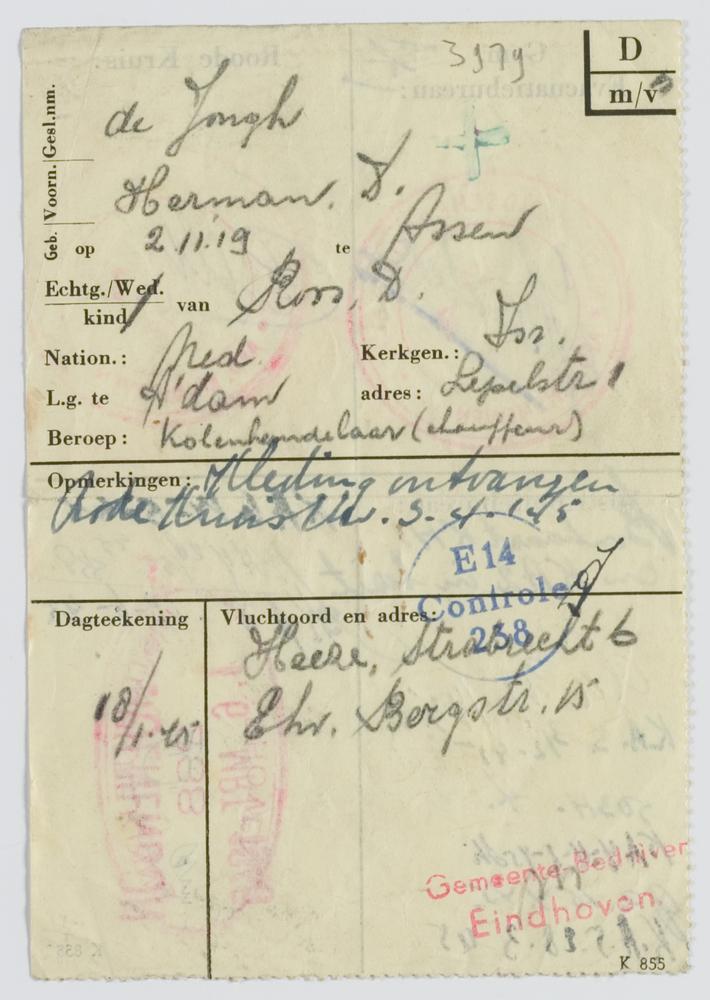 3979
D
m/v
Gesl.nm. de Jongh
Voorn. Herman. D.
Geb. op 2.11.19 te Assen
Echtg./Wed.
kind van Roos, D.
Nation.: Ned. Kerkgen.: Isr.
L.g. te A'dam adres: Lepelstr 1
Beroep: Kolenhandelaar (chauffeur)
Opmerkingen: Kleding ontvangen
Rode Kruis Ehv. 3-4-'45
E 14
Controle
238
Dagteekening Vluchtoord en adres:
Heeze, Strabrecht 6
18/1-45 Ehv. Bergstr. 15
Gemeente-Bedrijven
Eindhoven.
K 855